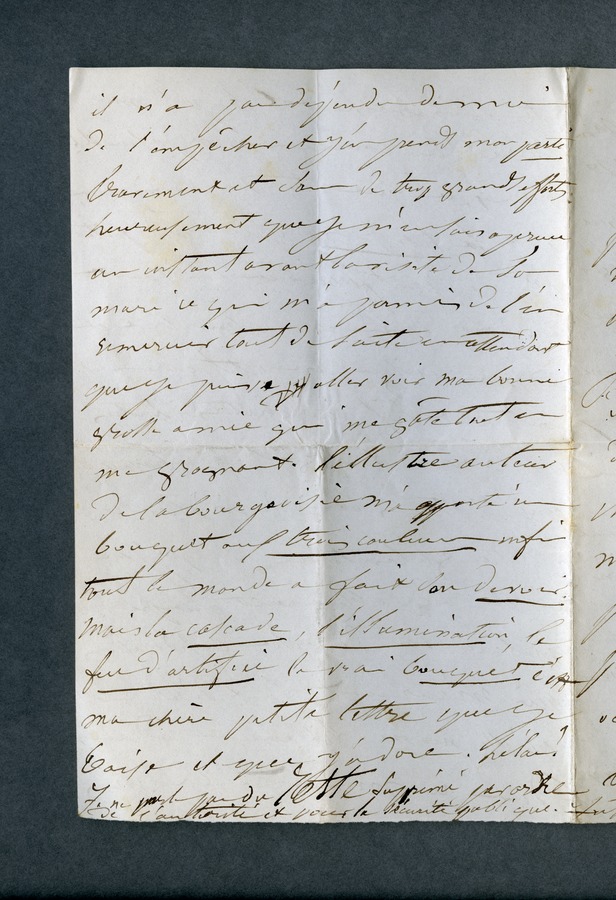 il n'a pas dépendu de moi
de l'empêcher et j'en prends mon parti
bravement et sans de trop grands efforts
heureusement que je m'en suis aperçue
un instant avant la visite de son
mari ce qui m'a permis de l'en
remercier tout de suite en attendant
que je puisse aller voir ma bonne
grosse amie qui me gâte tout en
me grognant. l'illustre auteur
de la bourgeoisie m'a apporté un
bouquet aux trois couleurs enfin
tout le monde a fait son devoir.
Mais la cascade, l'illumination, le
feu d'artifice le vrai bouquet c'est
ma chère petite lettre que je
baise et que j'adore. hélas
Je ne parle pas du supprimé par ordre
de l'autorité et pour la sécurité publique.